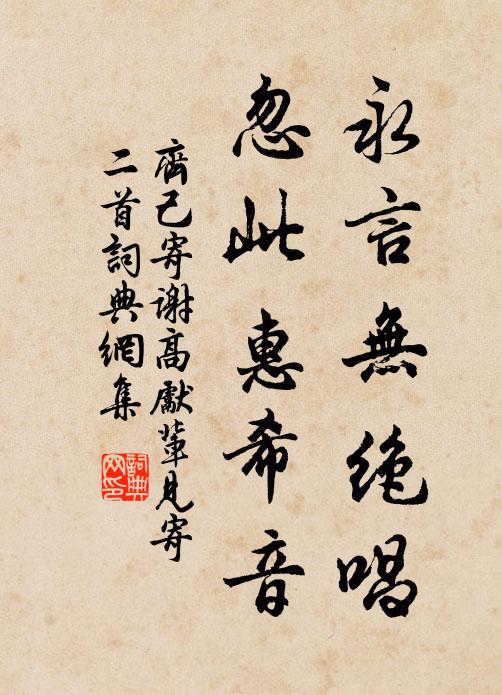 永言無絶唱
忽此惠希音
齊己寄謝高獻輩見寄
二首詞典網集
詞典
网印